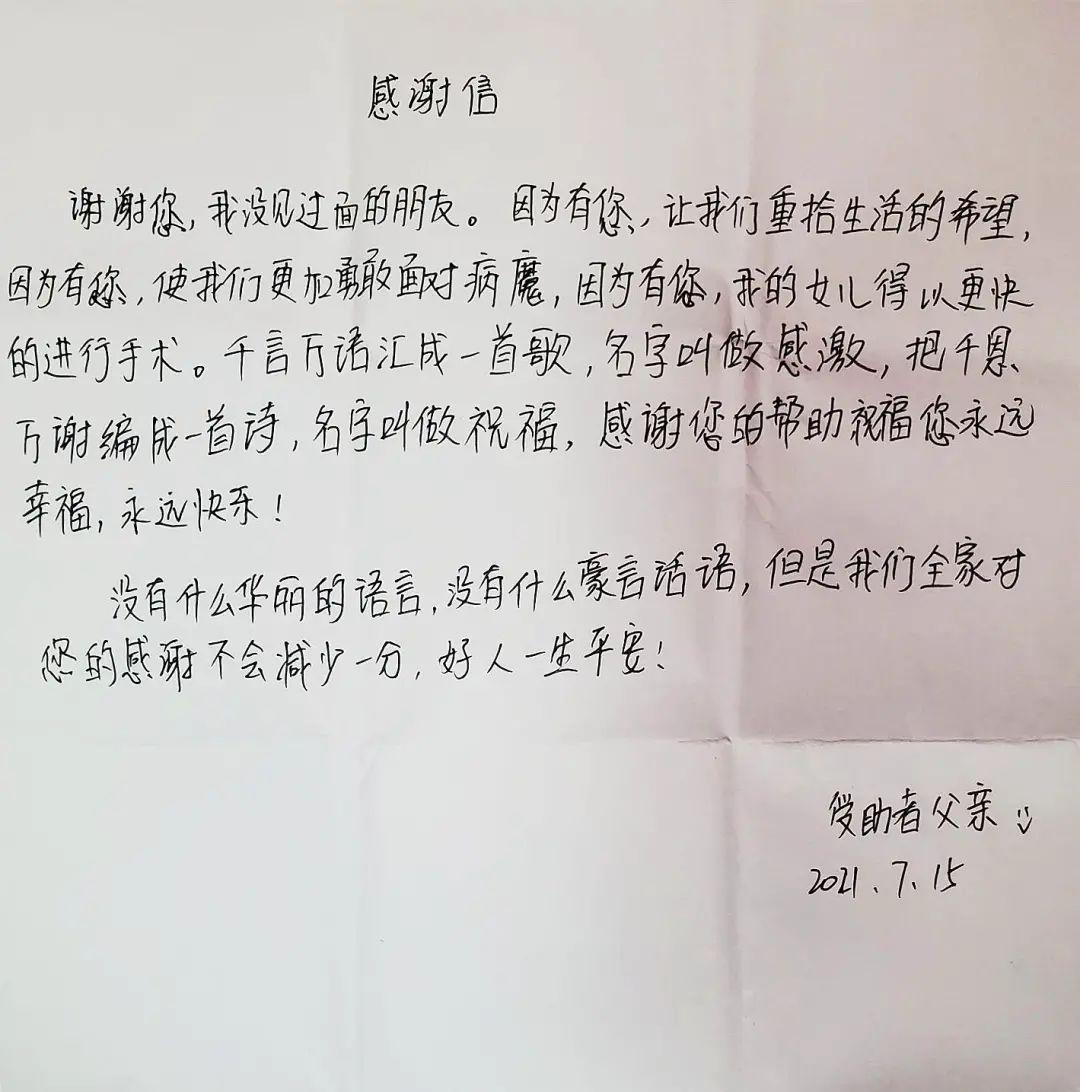 感谢信
谢谢您，我没见过面的朋友。因为有您，让我们重拾生活的希望，
因为有您，使我们更加勇敢面对病魔，因为有您，我的女儿得以更快
的进行手术。千言万语汇成一首歌，名字叫做感激，把千恩
万谢编成一首诗，名字叫做祝福，感谢您的帮助祝福您永远
幸福，永远快乐！
没有什么华丽的语言，没有什么豪言话语，但是我们全家对
您的感谢不会减少一分，好人一生平安！
受助者父亲
2021.7.15